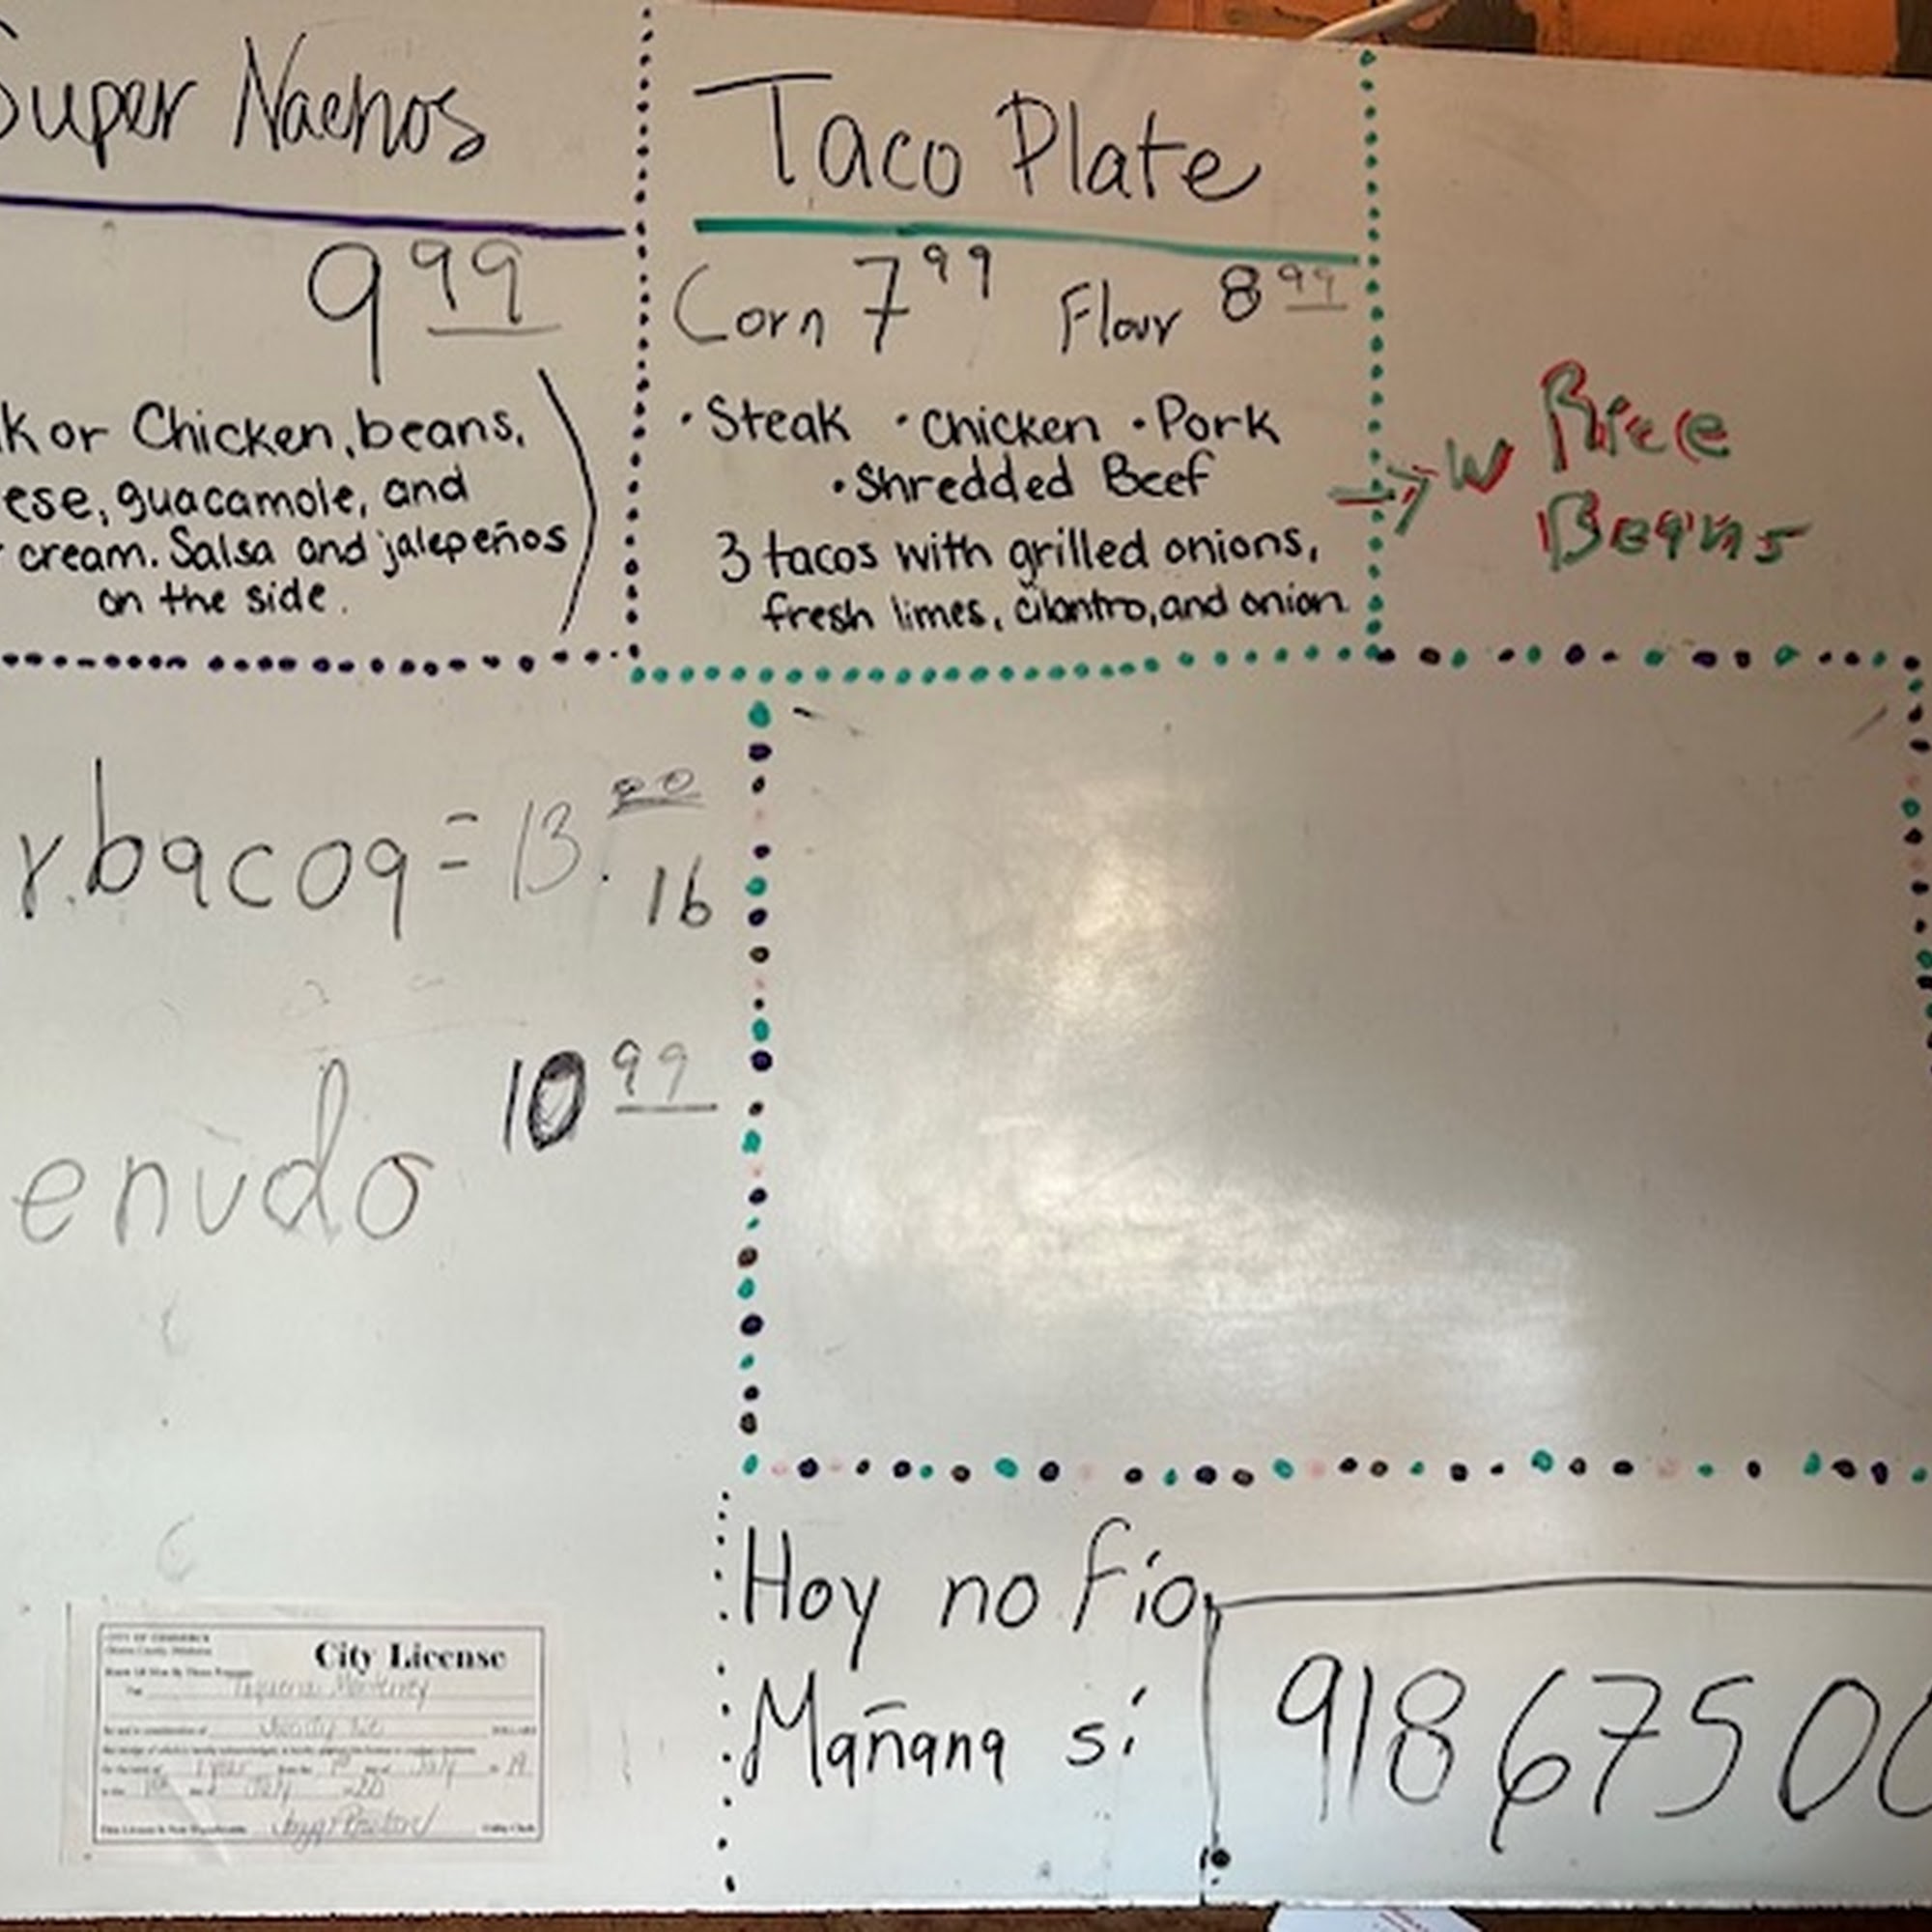 Super Nachos
9 99
k or Chicken, beans,
ese, guacamole, and
cream. Salsa and jalepeños
on the side.
Taco Plate
Corn 7 99 Flour 8 99
· Steak · Chicken · Pork
· Shredded Beef
3 tacos with grilled onions,
fresh limes, cilantro, and onion.
→ W Rice
Beans
r.bacoa = 13.00
16
enudo 10 99
Hoy no Fío,
Mañana sí
9186750
City License